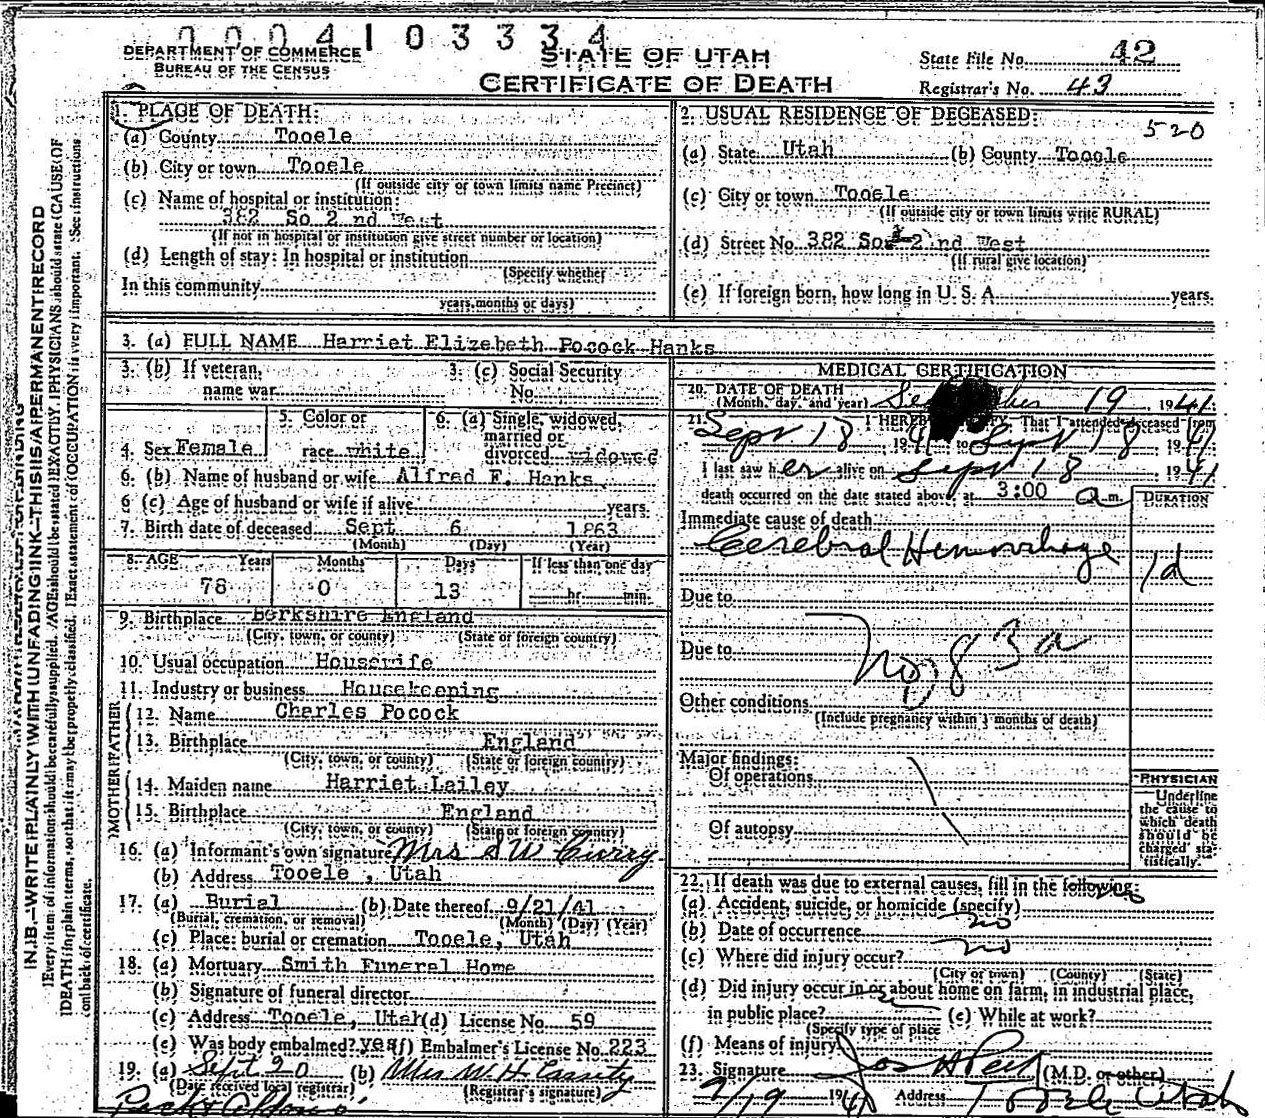 000410334
DEPARTMENT OF COMMERCE
BUREAU OF THE CENSUS
STATE OF UTAH
CERTIFICATE OF DEATH
State File No. 42
Registrar's No. 43
1. PLACE OF DEATH:
(a) County Tooele
(b) City or town Tooele
(If outside city or town limits name Precinct)
(c) Name of hospital or institution:
382 So 2 nd West
(If not in hospital or institution give street number or location)
(d) Length of stay: In hospital or institution
(Specify whether
In this community
years, months or days)
2. USUAL RESIDENCE OF DECEASED:
520
(a) State Utah (b) County Tooele
(c) City or town Tooele
(If outside city or town limits write RURAL)
(d) Street No. 382 So 2 nd West
(If rural give location)
(e) If foreign born, how long in U. S. A. years.
3. (a) FULL NAME Harriet Elizebeth Pocock Hanks
3. (b) If veteran, name war
3. (c) Social Security No.
4. Sex Female
5. Color or race white
6. (a) Single, widowed, married or divorced widowed
6. (b) Name of husband or wife Alfred F. Hanks
6 (c) Age of husband or wife if alive years.
7. Birth date of deceased Sept 6 1863
(Month) (Day) (Year)
8. AGE Years Months Days If less than one day
78 0 13 hr. min.
9. Birthplace Berkshire England
(City, town, or county) (State or foreign country)
10. Usual occupation Housewife
11. Industry or business Housekeeping
FATHER
12. Name Charles Pocock
13. Birthplace England
(City, town, or county) (State or foreign country)
MOTHER
14. Maiden name Harriet Lailey
15. Birthplace England
(City, town, or county) (State or foreign country)
16. (a) Informant's own signature Mrs S W Curry
(b) Address Tooele, Utah
17. (a) Burial (b) Date thereof 9/21/41
(Burial, cremation, or removal) (Month) (Day) (Year)
(c) Place: burial or cremation Tooele, Utah
18. (a) Mortuary Smith Funeral Home
(b) Signature of funeral director
(c) Address Tooele, Utah (d) License No. 59
(e) Was body embalmed? yes (f) Embalmer's License No. 223
19. (a) Sept 20 (b) Mrs W. H. Cassity
(Date received local registrar) (Registrar's signature)
MEDICAL CERTIFICATION
20. DATE OF DEATH
(Month, day, and year) 19, 1941
21. I HEREBY That I attended deceased from
Sept 18, 1941 to Sept 18, 1941
I last saw her alive on Sept 18, 1941
death occurred on the date stated above, at 3:00 a m.
DURATION
Immediate cause of death
Cerebral Hemorrhage 1d
Due to
Due to
No 83a
Other conditions
(Include pregnancy within 3 months of death)
Major findings:
Of operations
Of autopsy
PHYSICIAN
Underline
the cause to
which death
should be
charged sta-
tistically.
22. If death was due to external causes, fill in the following:
(a) Accident, suicide, or homicide (specify) no
(b) Date of occurrence no
(c) Where did injury occur?
(City or town) (County) (State)
(d) Did injury occur in or about home on farm, in industrial place,
in public place? (e) While at work?
(Specify type of place
(f) Means of injury
23. Signature Jos H Peck (M.D. or other)
9/19 1941 Address Tooele Utah
N. B.—WRITE PLAINLY WITH UNFADING INK—THIS IS A PERMANENT RECORD
Every item of information should be carefully supplied. AGE should be stated EXACTLY. PHYSICIANS should state CAUSE OF
DEATH in plain terms, so that it may be properly classified. Exact statement of OCCUPATION is very important. See instructions
on back of certificate.